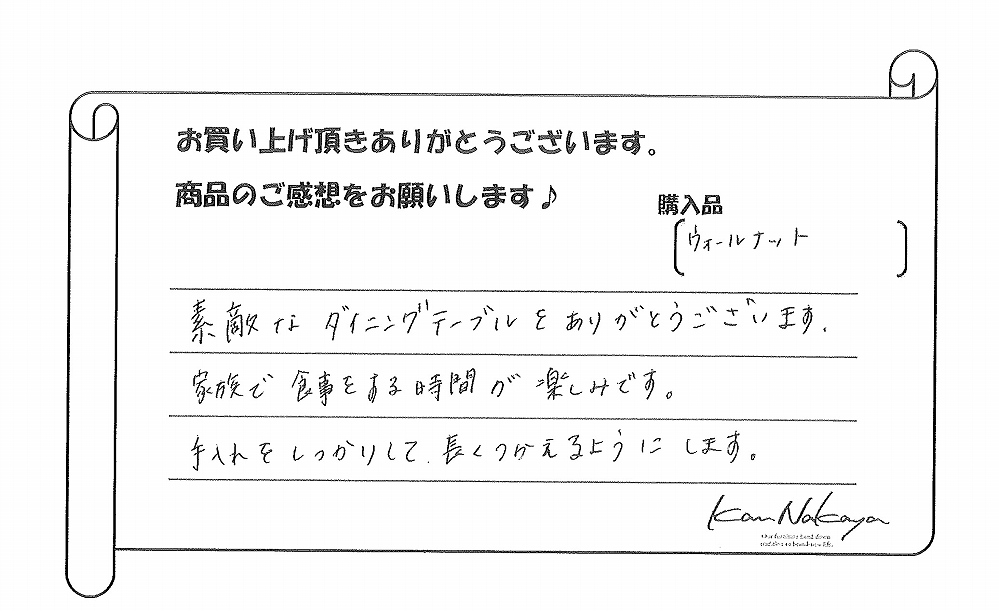 お買い上げ頂きありがとうございます。
商品のご感想をお願いします♪
購入品
ウォールナット
素敵な ダイニングテーブルを ありがとうございます.
家族で 食事をする時間が 楽しみです。
手入れをしっかりして. 長くつかえるようにします。
Kan Nakaya